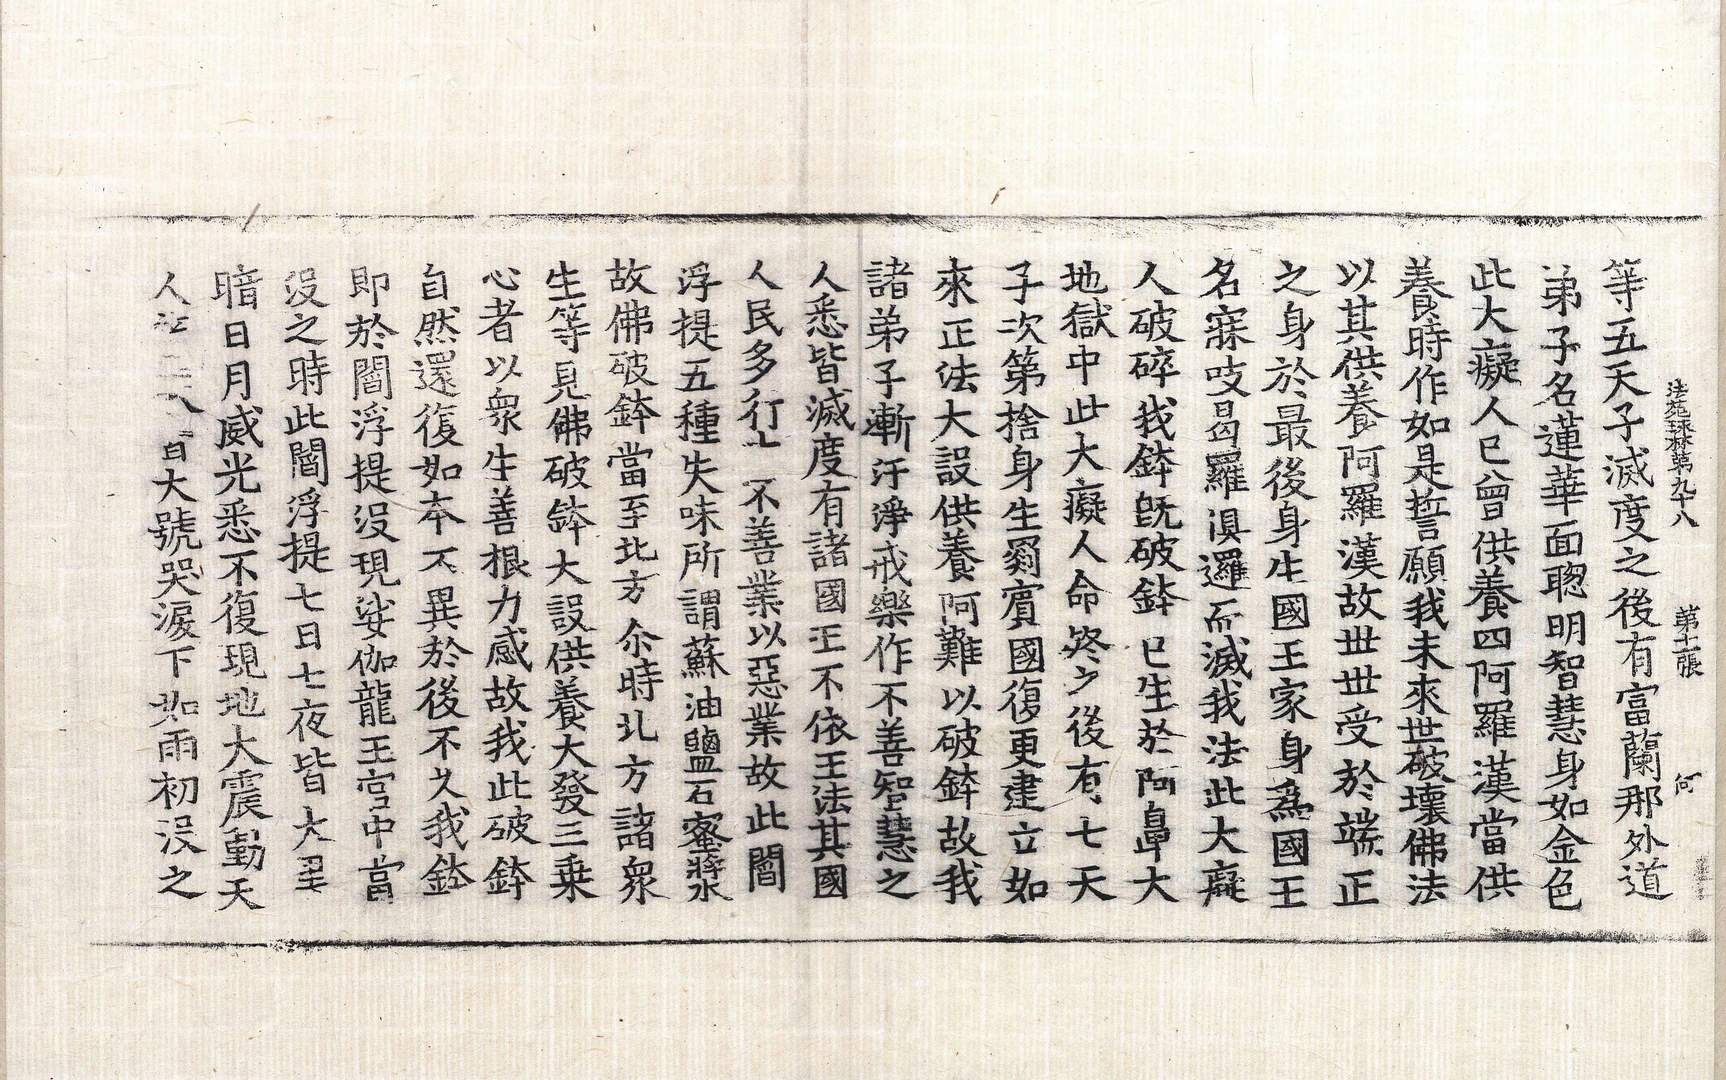 法苑珠林第九十八　第十一張　何
等五天子滅度之後有富蘭那外道
弟子名蓮華面聰明智慧身如金色
此大癡人已曾供養四阿羅漢當供
養時作如是誓願我未來世破壞佛法
以其供養阿羅漢故世世受於端正
之身於最後身生國王家身爲國王
名寐吱曷羅俱邏而滅我法此大癡
人破碎我鉢旣破鉢已生於阿鼻大
地獄中此大癡人命終之後有七天
子次第捨身生罽賓國復更建立如
來正法大設供養阿難以破鉢故我
諸弟子漸汙淨戒樂作不善智慧之
人悉皆滅度有諸國王不依王法其國
人民多行十不善業以惡業故此閻
浮提五種失味所謂蘇油鹽石蜜漿
故佛破鉢當至北方尒時北方諸衆
生等見佛破鉢大設供養大發三乗
心者以衆生善根力感故我此破鉢
自然還復如本不異於後不久我鉢
即於閻浮提没現娑伽龍王宮中當
没之時此閻浮提七日七夜皆大
暗日月威光悉不復現地大震動天
人 日大號哭淚下如雨初没之